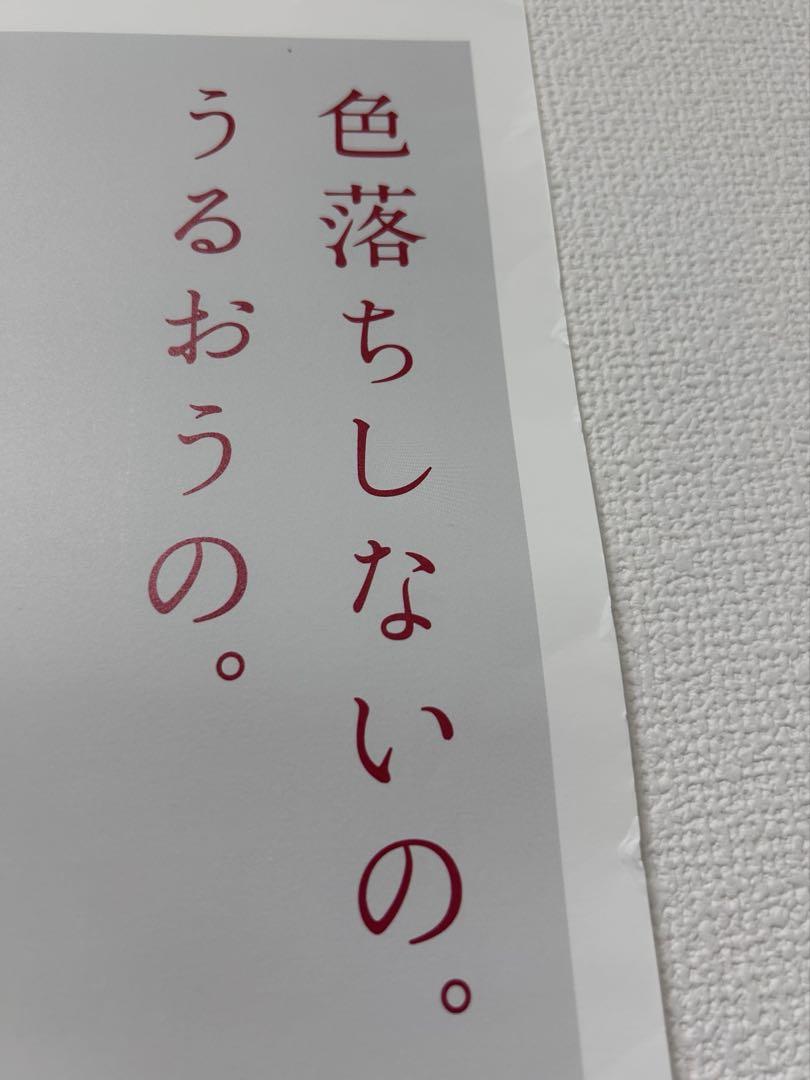 色落ちしないの。
うるおうの。